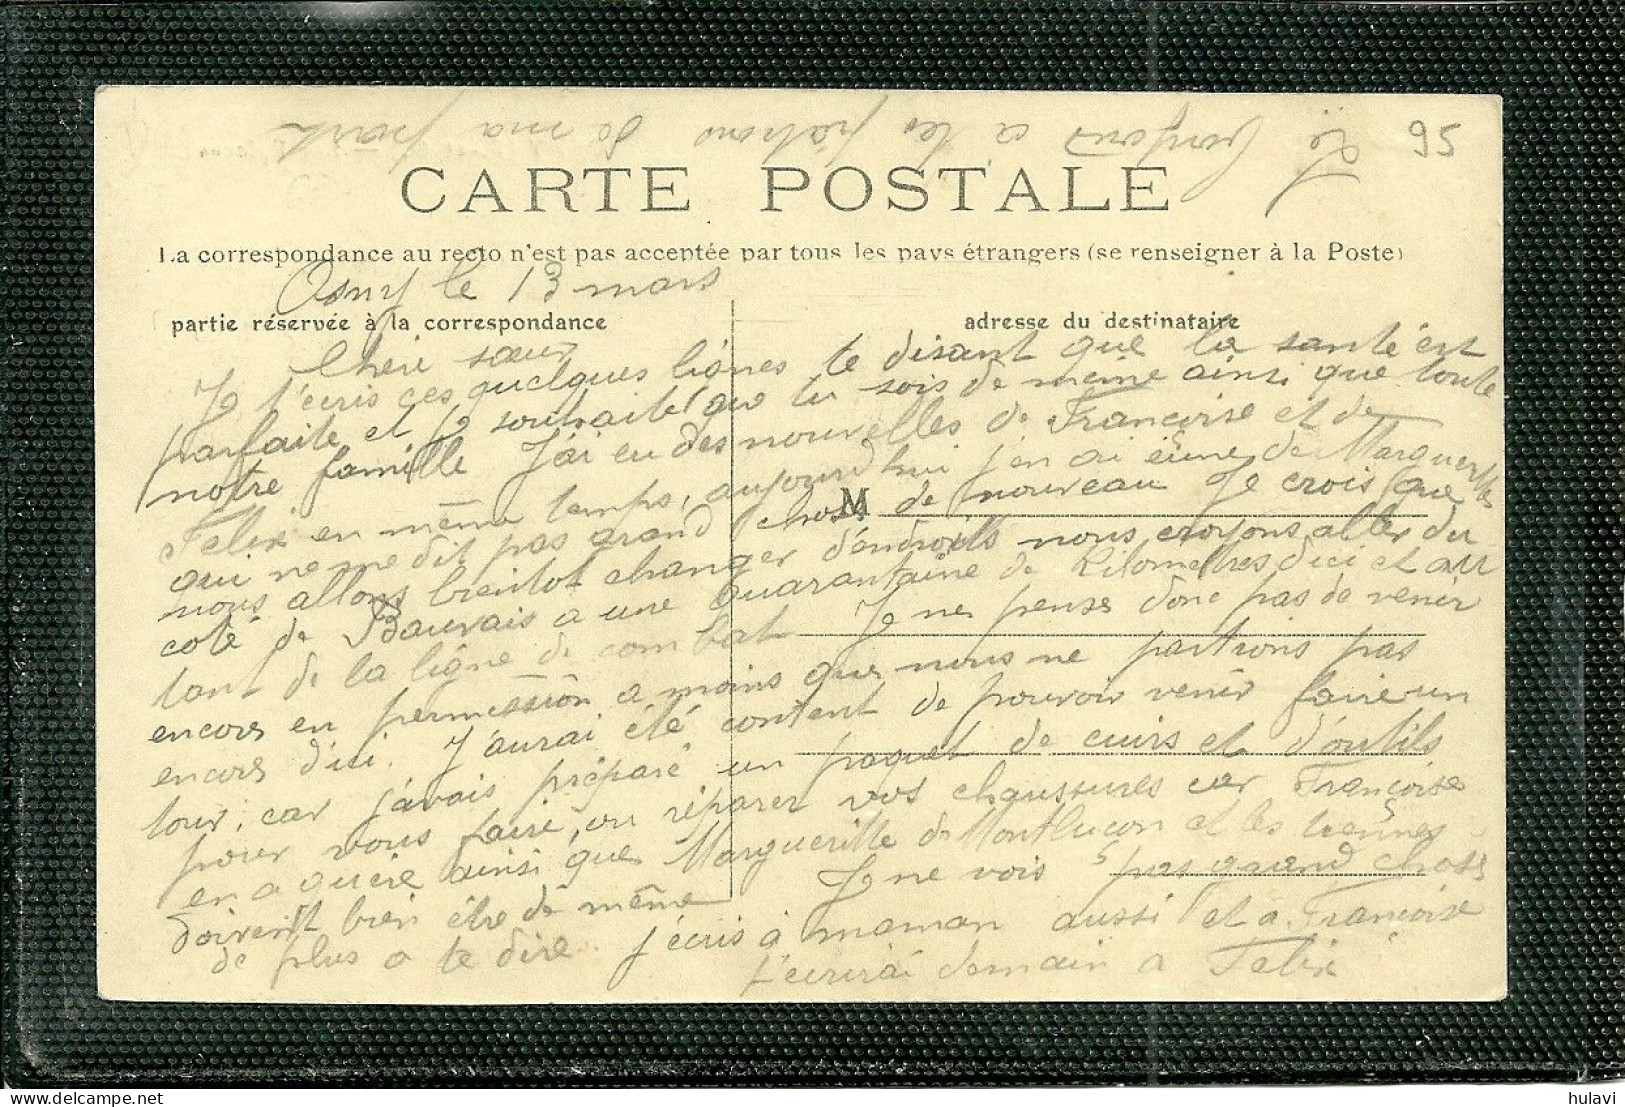 95
Le bonjour a tes patrons de ma part
CARTE POSTALE
La correspondance au recto n'est pas acceptée par tous les pays étrangers (se renseigner à la Poste)
Osny le 13 mars
partie réservée à la correspondance
adresse du destinataire
Chère sœur
Je t'écris ces quelques lignes te disant que la santé est
parfaite et je souhaite que tu sois de même ainsi que toute
notre famille J'ai eu des nouvelles de Françoise et de
Felix en même temps, aujourd'hui j'en ai eu une de Marguerite
qui ne me dit pas grand chose de nouveau Je crois que
M
nous allons bientot changer d'endroits nous croyons aller du
coté de Bauvais a une quarantaine de Kilomètres d'ici et au
tant de la ligne de combat Je ne pense donc pas de venir
encore en permission a moins que nous ne partions pas
encore d'ici. J'aurai été content de pouvoir venir faire un
tour, car j'avais préparé un paquet de cuirs et d'outils
pour vous faire, ou réparer vos chaussures car Françoise
en a guère ainsi que Marguerite de Montluçon et les tiennes
doivent bien être de même Je ne vois pas grand chose
de plus a te dire j'écris à maman aussi et a Françoise
j'écrirai demain a Felix
hulavi